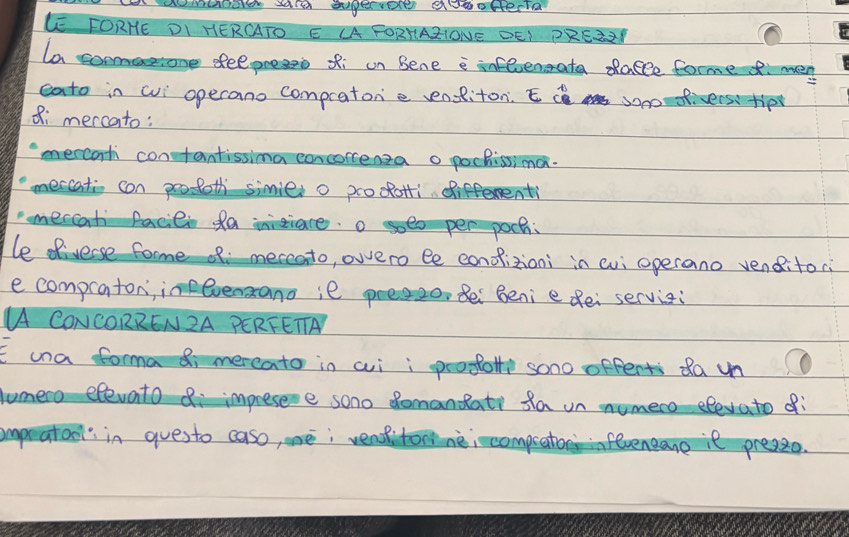 domanda sarà superiore all'offerta
LE FORME DI MERCATO E LA FORMAZIONE DEI PREZZI
la formazione del prezzo di un bene è influenzata dalle forme di mer
cato in cui operano compratori e venditori. E ci sono diversi tipi
di mercato:
• mercati con tantissima concorrenza o pochissima.
• mercati con prodotti simili o prodotti differenti
• mercati facili da iniziare o solo per pochi
le diverse forme di mercato, ovvero le condizioni in cui operano venditori
e compratori, influenzano il prezzo dei beni e dei servizi
LA CONCORRENZA PERFETTA
È una forma di mercato in cui i prodotti sono offerti da un
numero elevato di imprese e sono domandati da un numero elevato di
compratori: in questo caso, nè i venditori nè i compratori influenzano il prezzo.